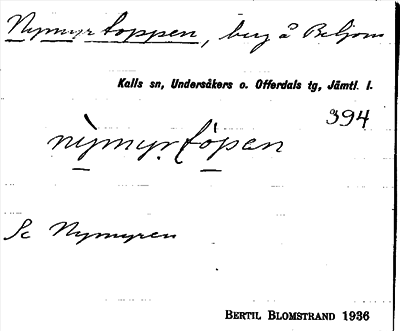 Nymyrtoppen, berg å Beljom
Kalls sn, Undersåkers o. Offerdals tg, Jämtl. l.
394
nỳmyṛtópen
Se Nymyren
BERTIL BLOMSTRAND 1936